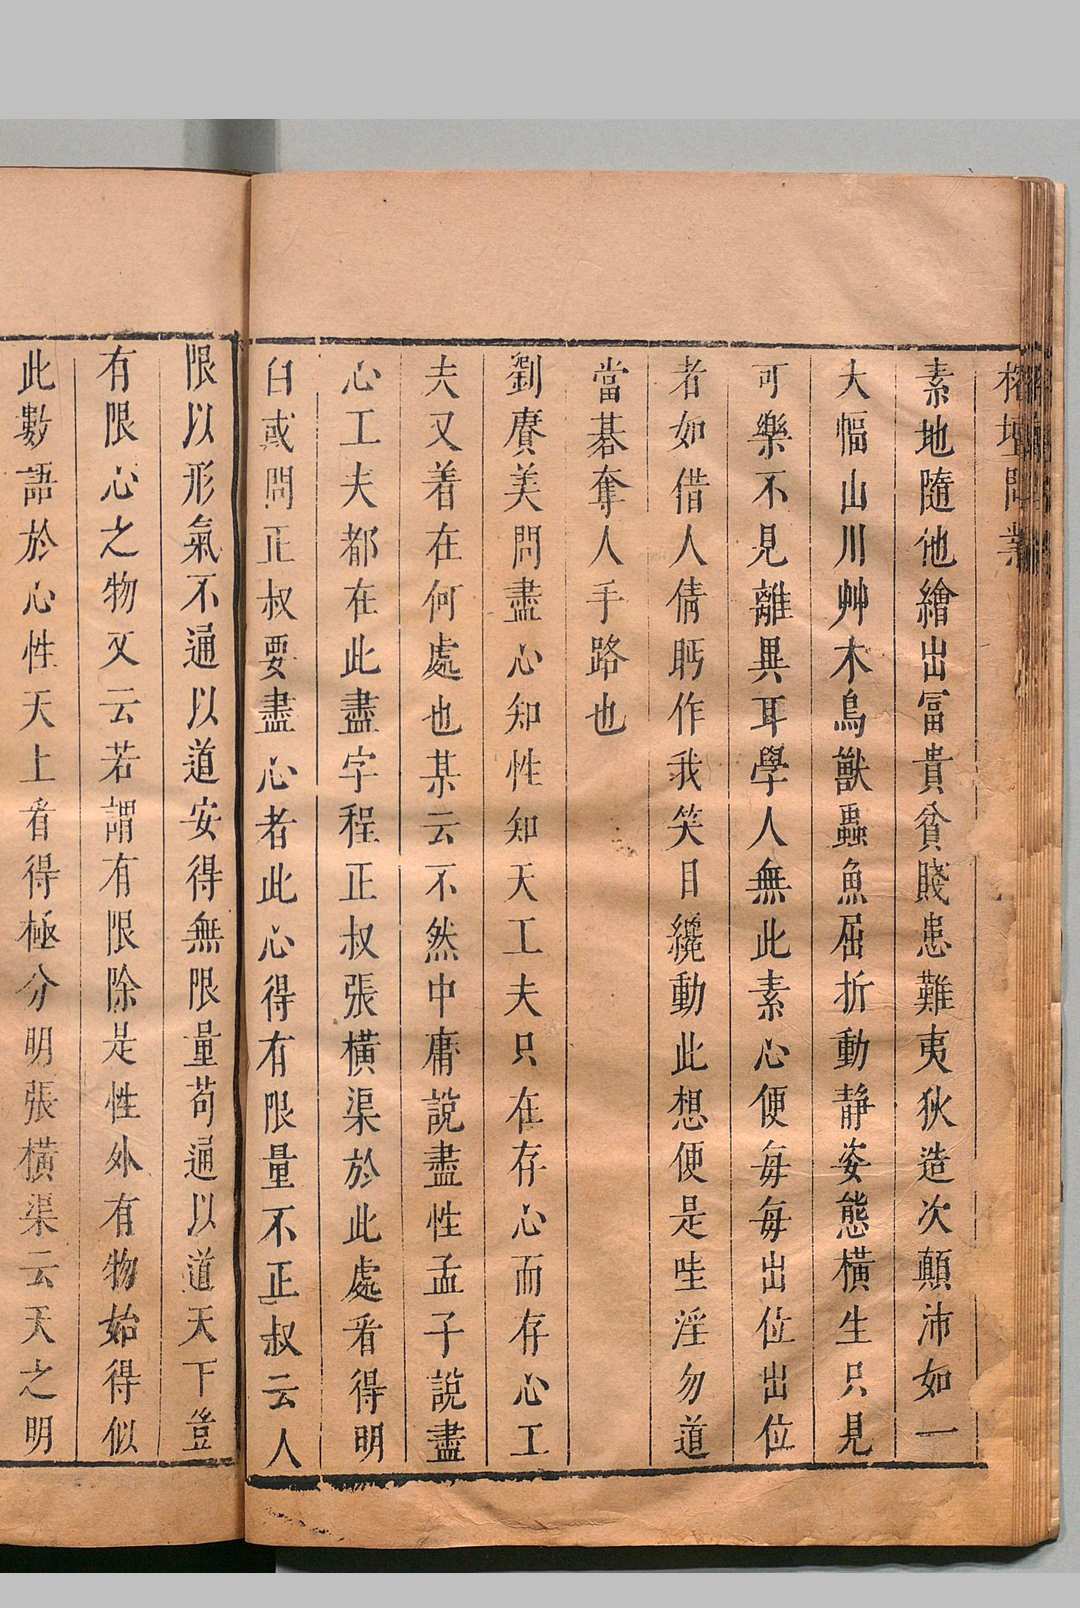 榕壇問業
素地隨他繪出富貴貧賤患難夷狄造次顛沛如一
大幅山川艸木鳥獸蟲魚屈折動靜姿態橫生只見
可樂不見離異耳學人無此素心便每每出位出位
者如借人倩眄作我笑目纔動此想便是哇淫勿道
當碁奪人手路也
劉賡美問盡心知性知天工夫只在存心而存心工
夫又着在何處也某云不然中庸說盡性孟子說盡
心工夫都在此盡字程正叔張橫渠於此處看得明
白或問正叔要盡心者此心得有限量不正叔云人
限以形氣不通以道安得無限量苟通以道天下豈
有限心之物又云若謂有限除是性外有物始得似
此數語於心性天上看得極分明張橫渠云天之明